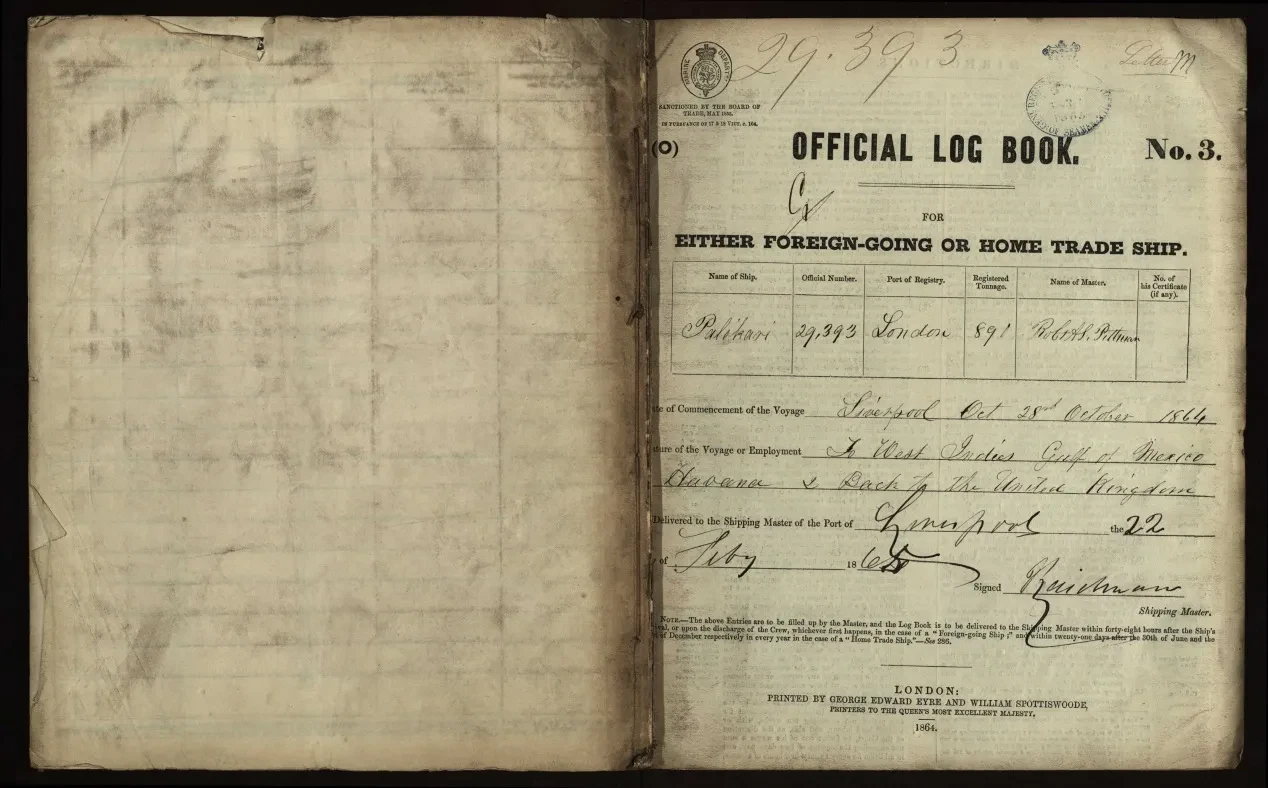 29.393
Letter M
MARINE DEPARTMENT
SANCTIONED BY THE BOARD OF
TRADE, MAY 1855,
IN PURSUANCE OF 17 & 18 VICT. c. 104.
(O)
OFFICIAL LOG BOOK.
No. 3.
FOR
EITHER FOREIGN-GOING OR HOME TRADE SHIP.
Name of Ship. Official Number. Port of Registry. Registered Tonnage. Name of Master. No. of his Certificate (if any).
Palikari 29,393 London 891 Pittman
te of Commencement of the Voyage Liverpool Oct 28 October 1864
ture of the Voyage or Employment To West Indies Gulf of Mexico
Havana & Back to the United Kingdom
Delivered to the Shipping Master of the Port of Liverpool the 22
y of Feby 1865
Signed
Shipping Master.
NOTE.—The above Entries are to be filled up by the Master, and the Log Book is to be delivered to the Shipping Master within forty-eight hours after the Ship's
val, or upon the discharge of the Crew, whichever first happens, in the case of a "Foreign-going Ship;" and within twenty-one days after the 30th of June and the
t of December respectively in every year in the case of a "Home Trade Ship."—See 286.
LONDON:
PRINTED BY GEORGE EDWARD EYRE AND WILLIAM SPOTTISWOODE,
PRINTERS TO THE QUEEN'S MOST EXCELLENT MAJESTY.
1864.